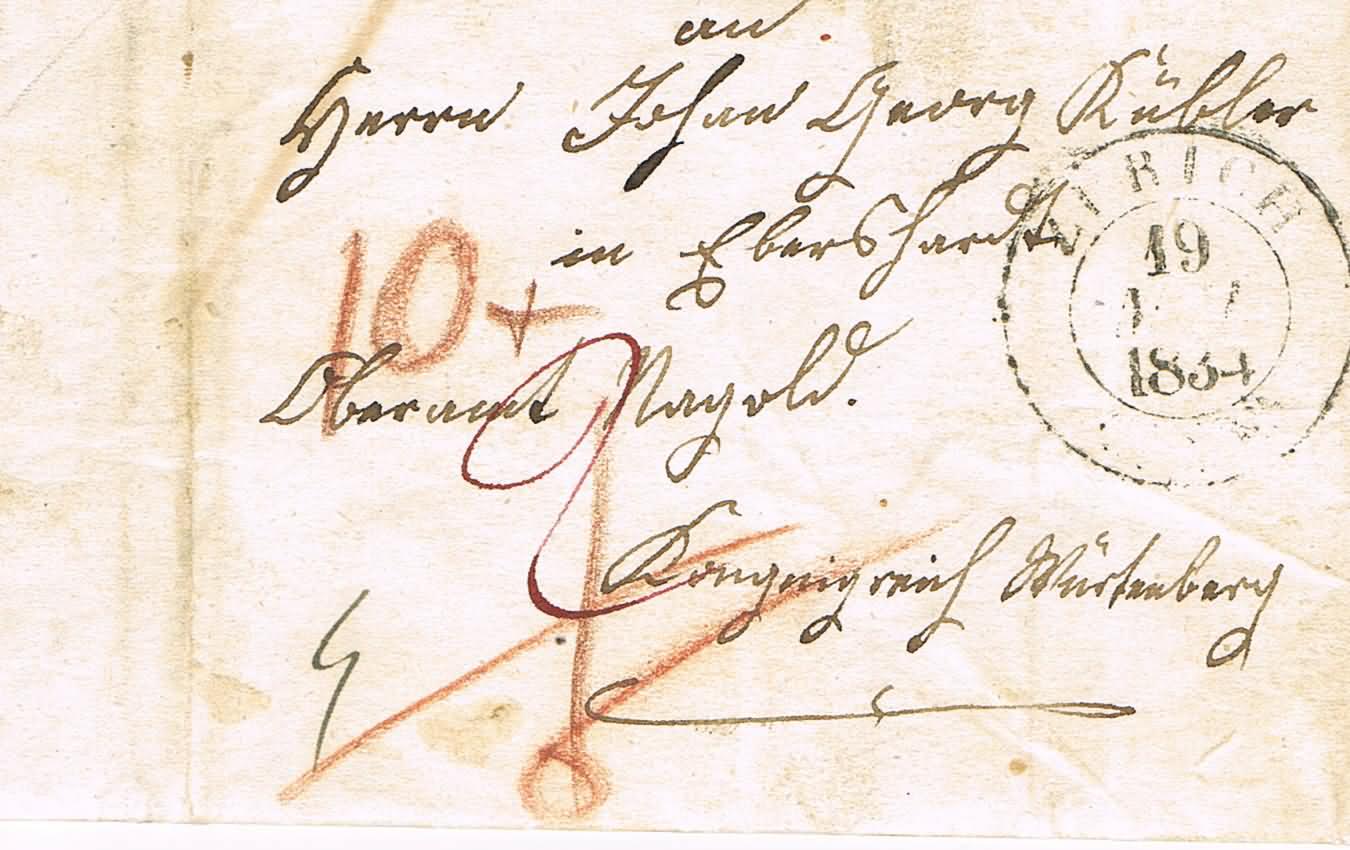 an
Herrn Johan Georg Kübler
in Ebershardt
10
Oberamt Nagold.
Kongnigreich Würtenberg
ZÜRICH
19
1854